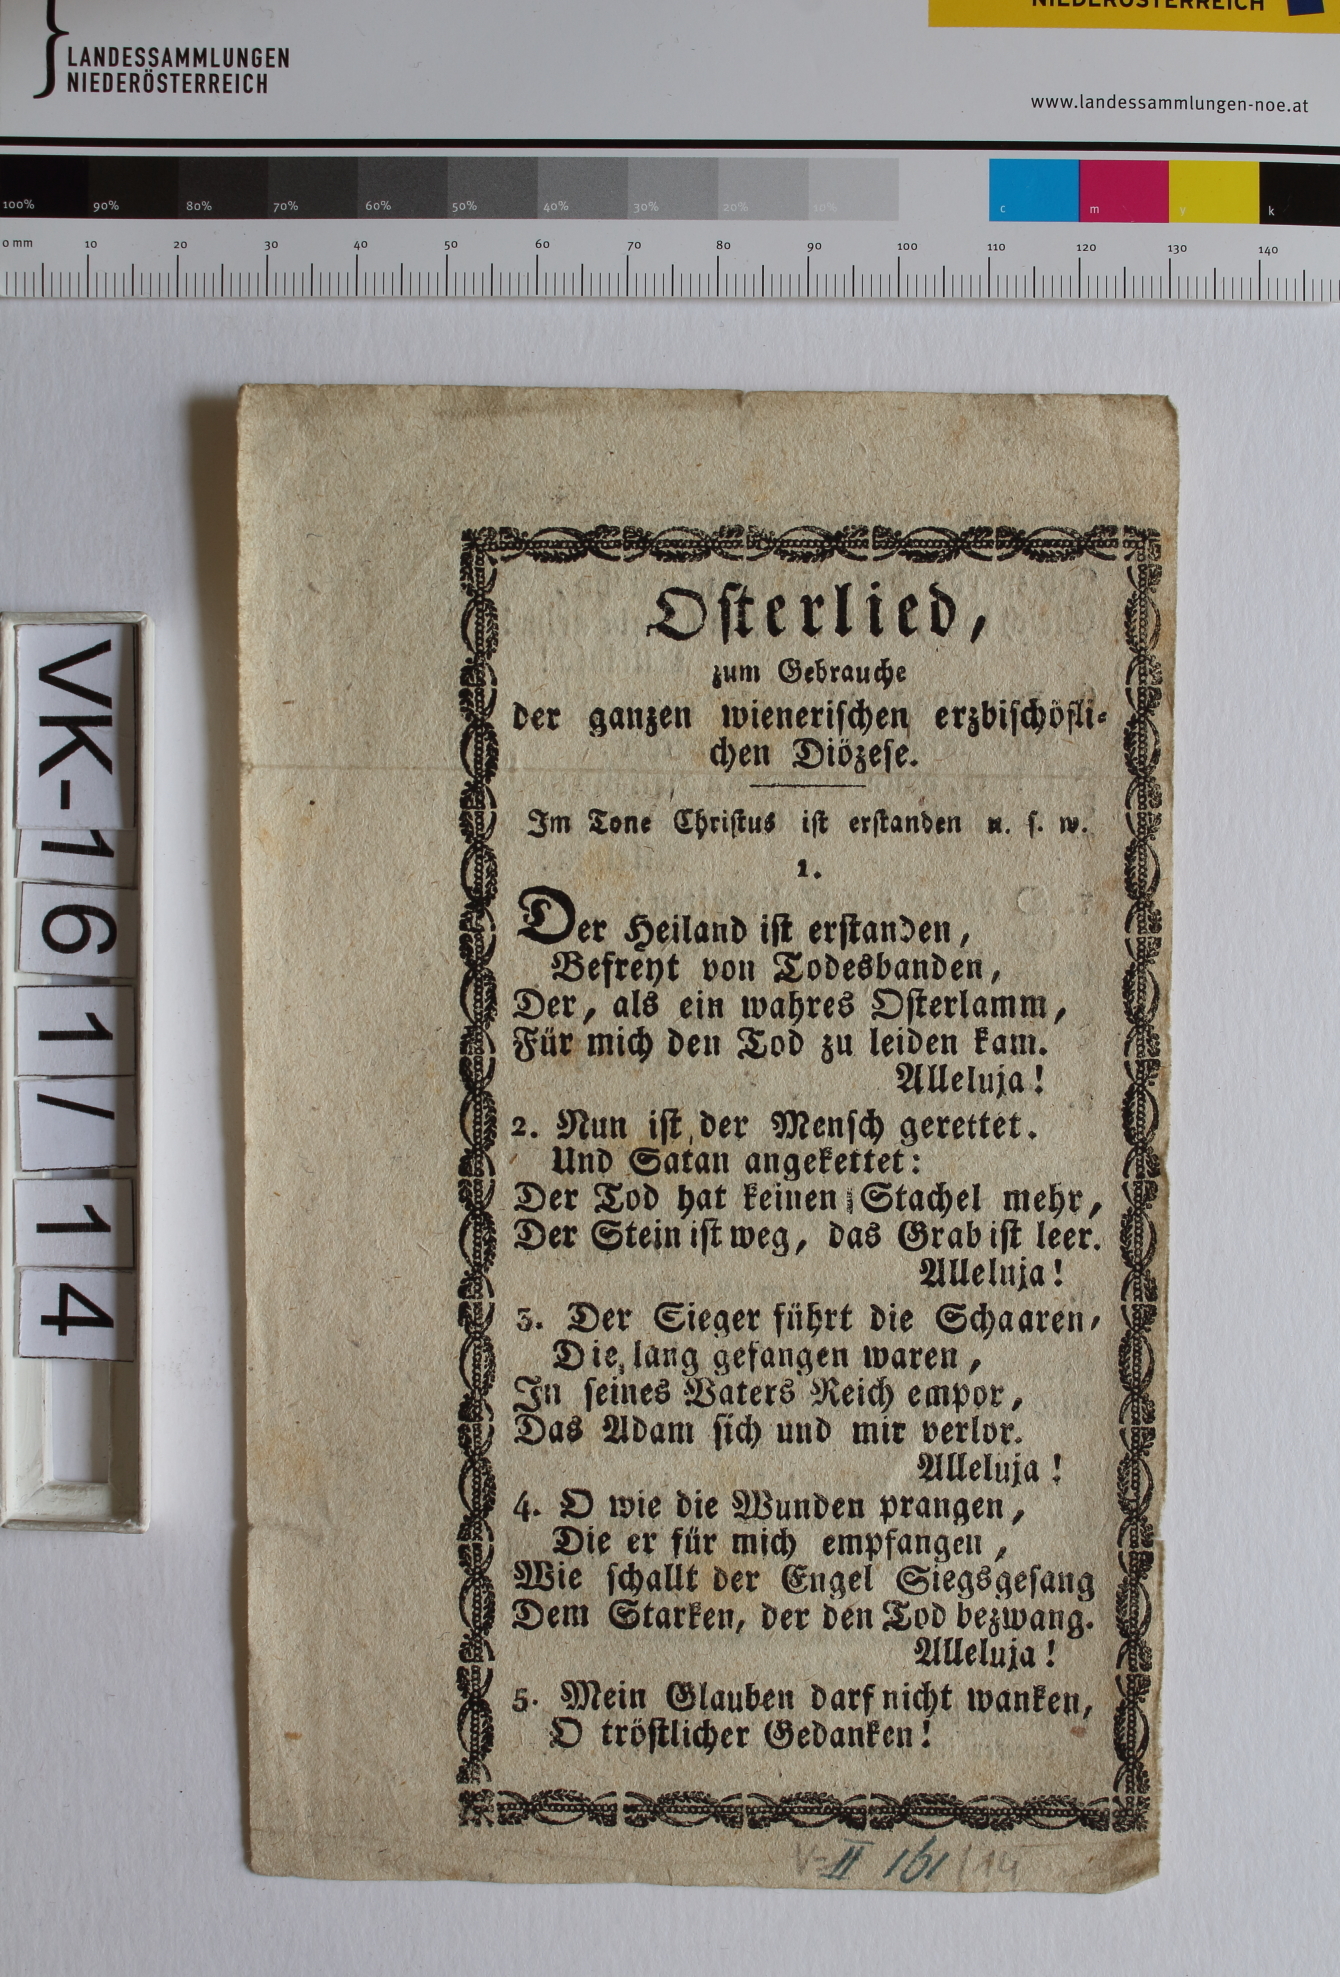 NIEDERÖSTERREICH
LANDESSAMMLUNGEN
NIEDERÖSTERREICH
www.landessammlungen-noe.at
100% 90% 80% 70% 60% 50% 40% 30% 20% 10% c m y k
0 mm 10 20 30 40 50 60 70 80 90 100 110 120 130 140
VK-161/14
Osterlied,
zum Gebrauche
der ganzen wienerischen erzbischöfli-
chen Diözese.
Im Tone Christus ist erstanden u. s. w.
1.
Der Heiland ist erstanden,
Befreyt von Todesbanden,
Der, als ein wahres Osterlamm,
Für mich den Tod zu leiden kam.
Alleluja!
2. Nun ist der Mensch gerettet.
Und Satan angekettet:
Der Tod hat keinen Stachel mehr,
Der Stein ist weg, das Grab ist leer.
Alleluja!
3. Der Sieger führt die Schaaren,
Die lang gefangen waren,
In seines Vaters Reich empor,
Das Adam sich und mir verlor.
Alleluja!
4. O wie die Wunden prangen,
Die er für mich empfangen,
Wie schallt der Engel Siegsgesang
Dem Starken, der den Tod bezwang.
Alleluja!
5. Mein Glauben darf nicht wanken,
O tröstlicher Gedanken!
V-II 161/14